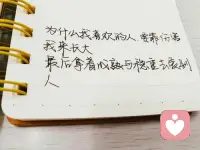 为什么我喜欢的人要靠伤害
我来长大
最后拿着成熟与稳重去爱别
人